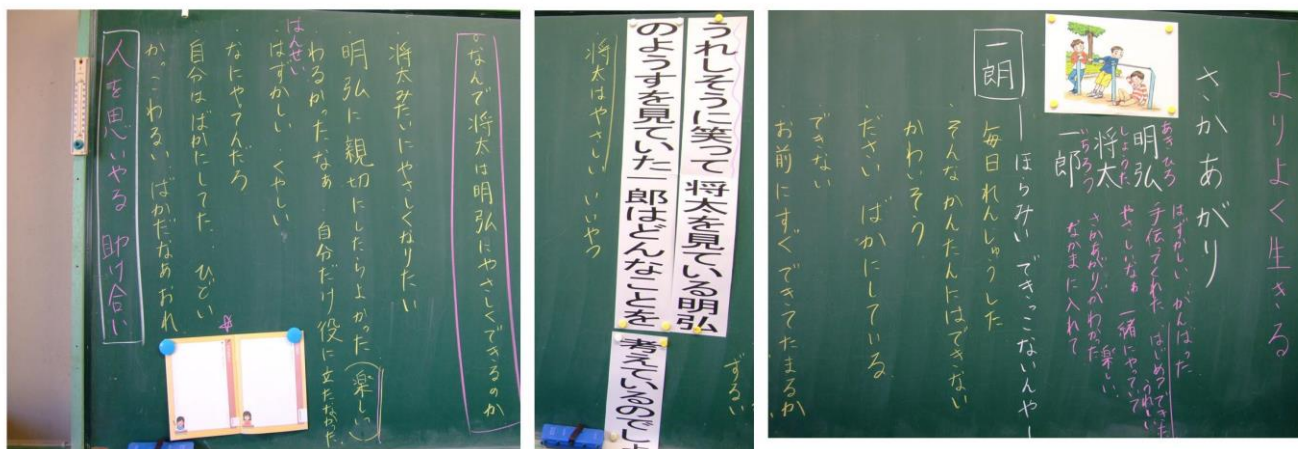 よりよく生きる
さかあがり
あきひろ
明弘
はずかしい がんばった
手伝ってくれた はじめてできた
うれしい
しょうた
将太
やさしいなぁ 一緒にやっていて
楽しい
いちろう
一郎
さかあがりがわかった
なかまに入れて
一郎 ー ほらみい できっこないんやー
毎日れんしゅうした
そんなかんたんにはできない
かわいそう
ださい ばかにしている
できない
お前にすぐできてたまるか
ずるい
うれしそうに笑って 将太を見ている明弘
のようすを見ていた一郎はどんなことを
考えているのでしょ
将太はやさしい いいやつ
なんで将太は明弘にやさしくできるのか
将太みたいにやさしくなりたい
明弘に親切にしたらよかった (楽しい)
わるかったなぁ 自分だけ役に立たなかった
はんせい
はずかしい くやしい
なにやってんだろ
自分はばかにしてた ひどい
かっこわるい ばかだなぁおれ
人を思いやる 助け合い